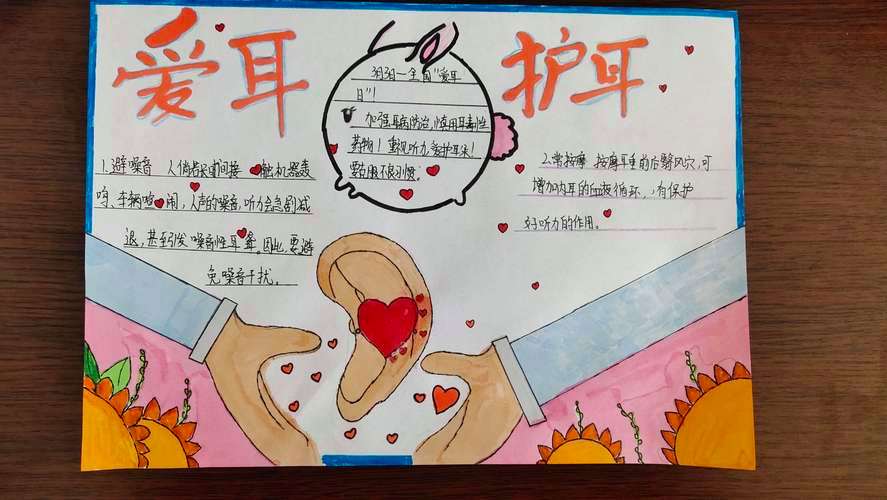 爱耳 护耳
3月3日－全国“爱耳
日”！
加强耳病防治，慎用耳毒性
药物！重视听力，爱护耳朵！
要克服不良习惯。
1.避噪音 人倘若长时间接触机器轰
鸣、车辆喧闹，人声的噪音，听力会急剧减
退，甚至引发噪音性耳聋。因此，要避
免噪音干扰。
2.常按摩 按摩耳垂前后翳风穴，可
增加内耳的血液循环，有保护
好听力的作用。